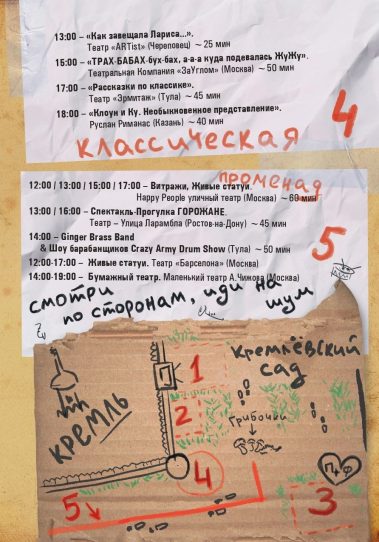 13:00 – «Как завещала Лариса...».
Театр «ARTist» (Череповец) ~ 25 мин
15:00 – «ТРАХ-БАБАХ-бух-бах, а-а-а куда подевалась ЖуЖу».
Театральная Компания «ЗаУглом» (Москва) ~ 50 мин
17:00 – «Рассказы по классике».
Театр «Эрмитаж» (Тула) ~ 45 мин
18:00 – «Клоун и Ку. Необыкновенное представление».
Руслан Риманас (Казань) ~ 40 мин
4
классическая
променад
12:00 / 13:00 / 15:00 / 17:00 – Витражи, Живые статуи.
Happy People уличный театр (Москва) ~ 60 мин
13:00 / 16:00 – Спектакль-Прогулка ГОРОЖАНЕ.
Театр – Улица Ларамбла (Ростов-на-Дону) ~ 45 мин
5
14:00 – Ginger Brass Band
& Шоу барабанщиков Crazy Army Drum Show (Тула) ~ 50 мин
12:00-17:00 – Живые статуи. Театр «Барселона» (Москва)
14:00-19:00 – Бумажный театр. Маленький театр А.Чижова (Москва)
смотри
по сторонам, иди на
шум
Кремлёвский
сад
1
2
Кремль
Грибочки
4
П+Ф
3
5